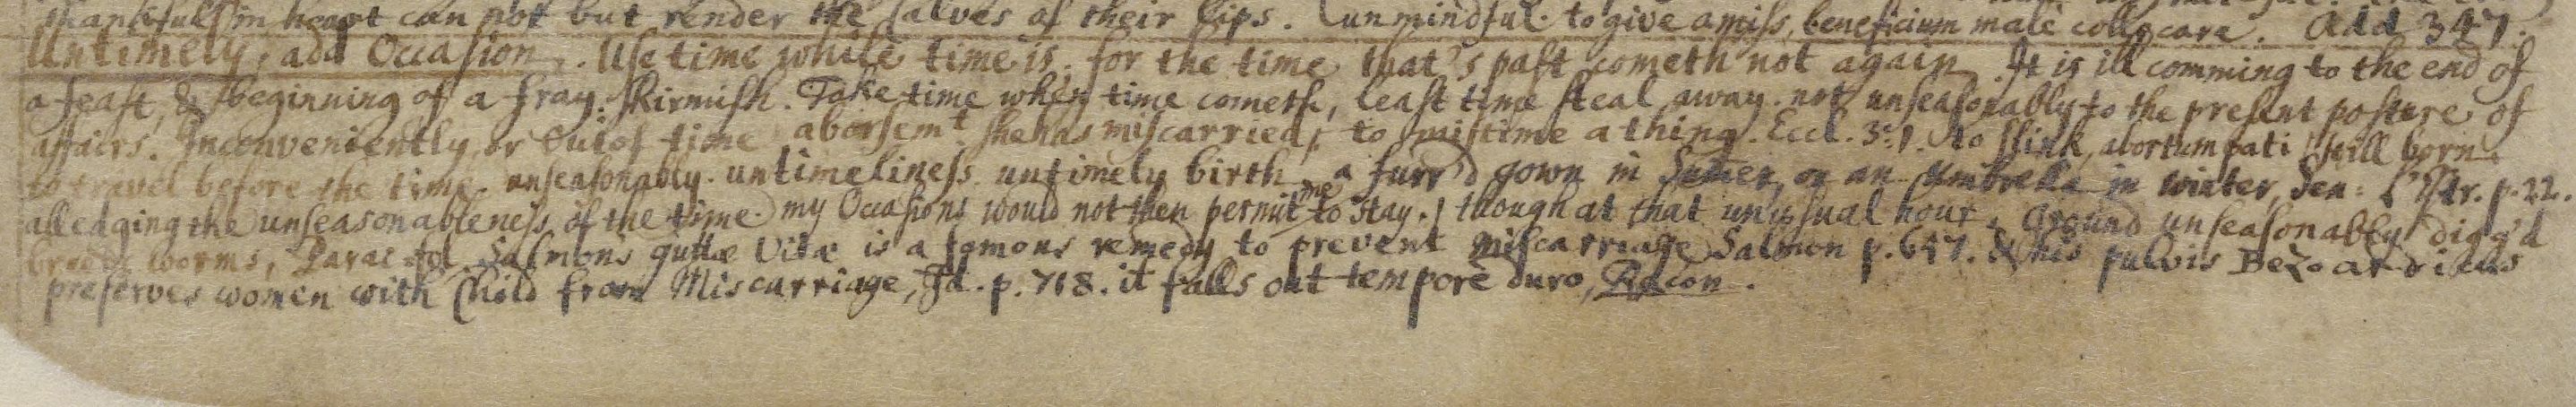 thankfull in heart can not but render the salves of their lips. unmindful. to give amiss, beneficium male collocare. Add 347.
Untimely, add Occasion. Use time while time is. for the time that's past cometh not again. It is ill comming to the end of
a feast, & beginning of a fray. Skirmish. Take time when time cometh, least time steal away. not unseasonably to the present posture of
affairs. Inconveniently, or out of time aborsemt she has miscarried, to mistime a thing. Eccl. 3:1. to slink, abortum pati still born.
to travel before the time. unseasonably. untimeliness. untimely birth, a furr'd gown in Summer, or an Umbrella in winter, Sen: L'Str. p. 22.
alledging the unseasonableness of the time. my Occasions would not then permit me to stay. though at that unusual hour. Ground unseasonably digg'd
breeds worms, Salmons guttæ Vitæ is a famous remedy to prevent miscarriage Salmon p. 647. & his pulvis Bezoardicus
preserves women with Child from Miscarriage, Id. p. 718. it falls out tempore duro, Bacon.